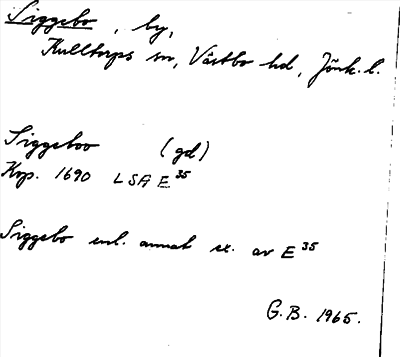 Siggebo, by,
Kulltorps sn, Västbo hd, Jönk. l.
Siggeboo (gd)
Krp. 1690 LSA E 35
Siggebo enl. annat ex. av E 35
G.B. 1965.